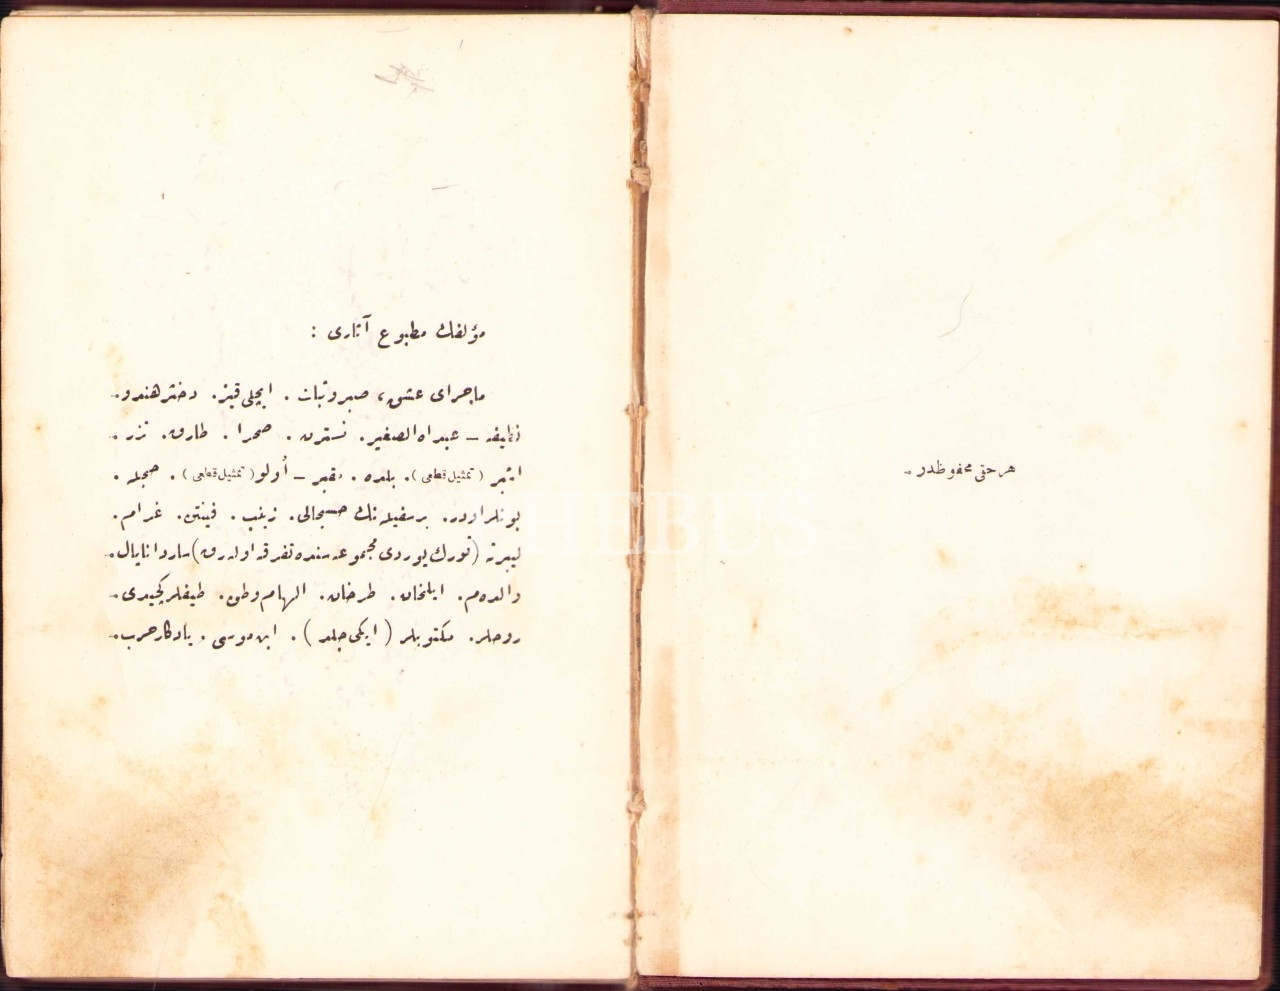 هر حقی محفوظدر .
مؤلفك مطبوع آثاری :
ماجرای عشق ، صبر و ثبات . ایچلی قیز . دختر هندو .
نظیفه – عبداه الصغیر . نسترن . صحرا . طارق . تزر .
اشبر ( تمثیل قطعی ) . بلده . مقبر – أولو ( تمثیل قطعی ) . حجله .
بونلر اودر . بر سفیله نك حسبحالی . زینب . فینتن . غرام .
لیبرته ( تورك یوردی مجموعه سنده تفرقه اوله رق ) ساردانابال .
والده م . ایلخان . طرخان . الهام وطن . طیفلر کچیدی .
روحلر . مکتوبلر ( ایکی جلد ) . ابن موسی . یادکار حرب .
PHEBUS